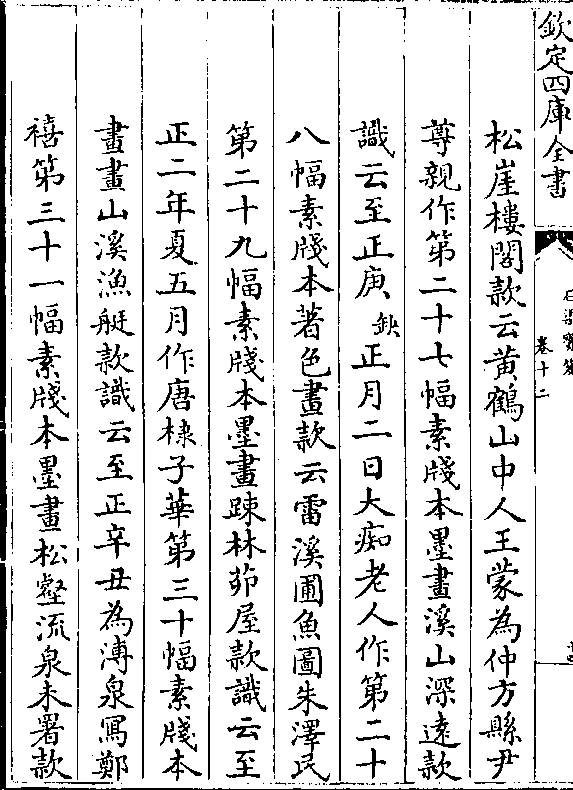 欽定四庫全書
石渠寳笈
卷十二
松崖樓閣款云黄鶴山中人王蒙為仲方縣尹
尊親作第二十七幅素牋本墨畫溪山深遠款
識云至正庚缺正月二日大痴老人作第二十
八幅素牋本著色畫款云雷溪圃魚圖朱澤民
第二十九幅素牋本墨畫踈林茆屋款識云至
正二年夏五月作唐棣子華第三十幅素牋本
畫畫山溪漁艇款識云至正辛丑為溥泉寫鄭
禧第三十一幅素牋本墨畫松壑流泉未署款